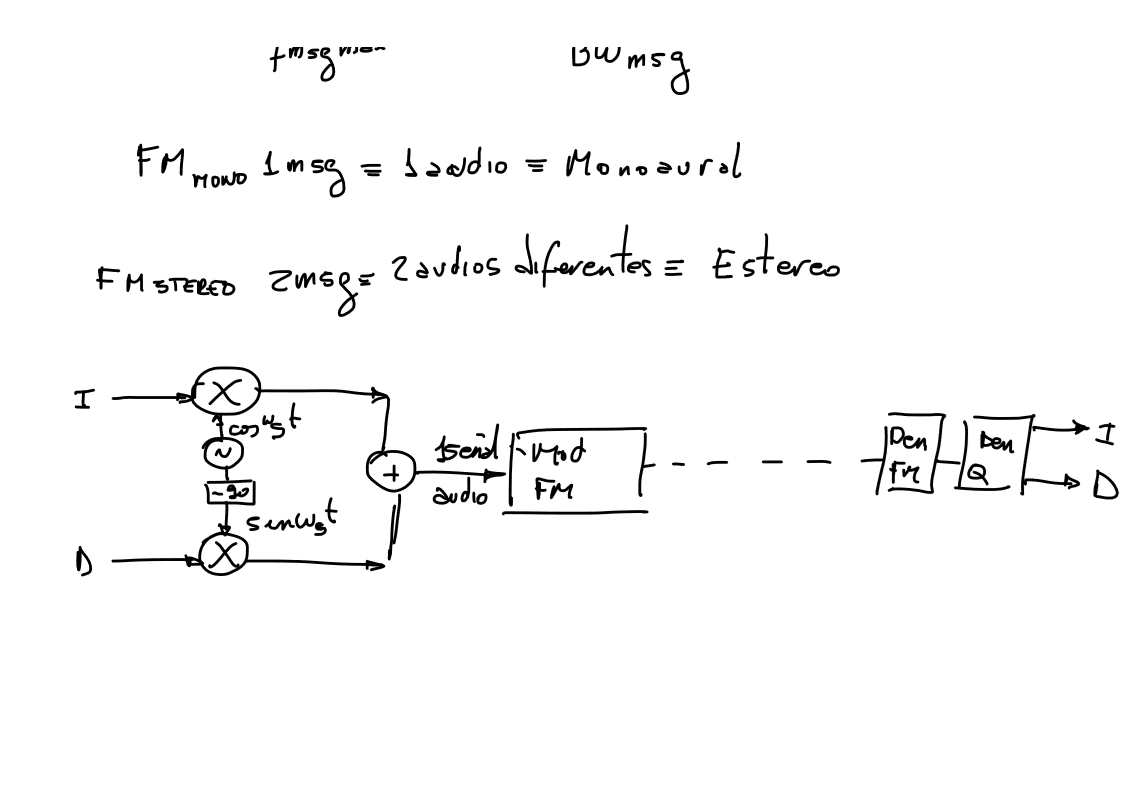 BW msg
FM MONO 1 msg ≡ 1 audio ≡ Monoaural
FM STEREO 2 msg = 2 audios diferentes ≡ Estereo
I X
cos ωs t
~
-90
sen ωs t
D X
+
1 señal
audio
Mod
FM
Dem
FM
Dem
Q
I
D